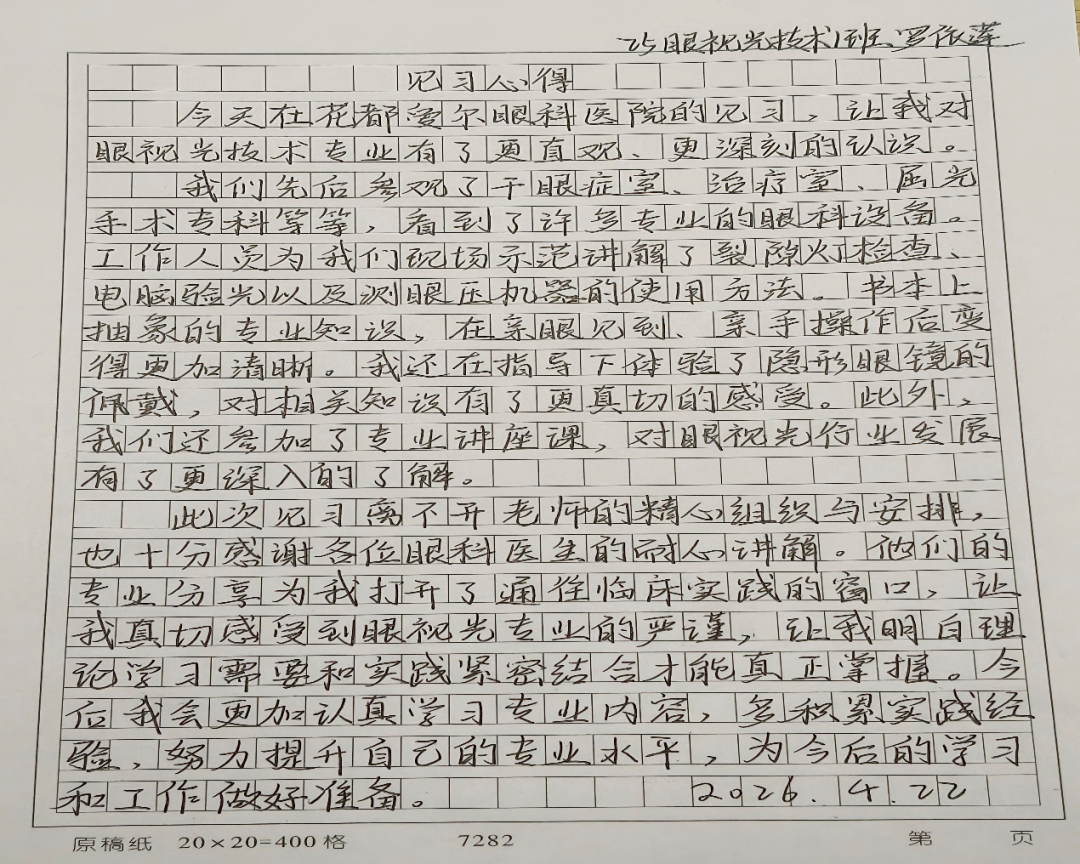 25眼视光技术1班 罗依莲
见习心得
今天在花都爱尔眼科医院的见习，让我对
眼视光技术专业有了更直观、更深刻的认识。
我们先后参观了干眼症室、治疗室、屈光
手术专科等等，看到了许多专业的眼科设备。
工作人员为我们现场示范讲解了裂隙灯检查、
电脑验光以及测眼压机器的使用方法。书本上
抽象的专业知识，在亲眼见到、亲手操作后变
得更加清晰。我还在指导下体验了隐形眼镜的
佩戴，对相关知识有了更真切的感受。此外，
我们还参加了专业讲座课，对眼视光行业发展
有了更深入的了解。
此次见习离不开老师的精心组织与安排，
也十分感谢各位眼科医生的耐心讲解。他们的
专业分享为我打开了通往临床实践的窗口，让
我真切感受到眼视光专业的严谨，让我明白理
论学习需要和实践紧密结合才能真正掌握。今
后我会更加认真学习专业内容，多积累实践经
验，努力提升自己的专业水平，为今后的学习
和工作做好准备。 2026.4.22
原稿纸 20×20=400格 7282 第 页